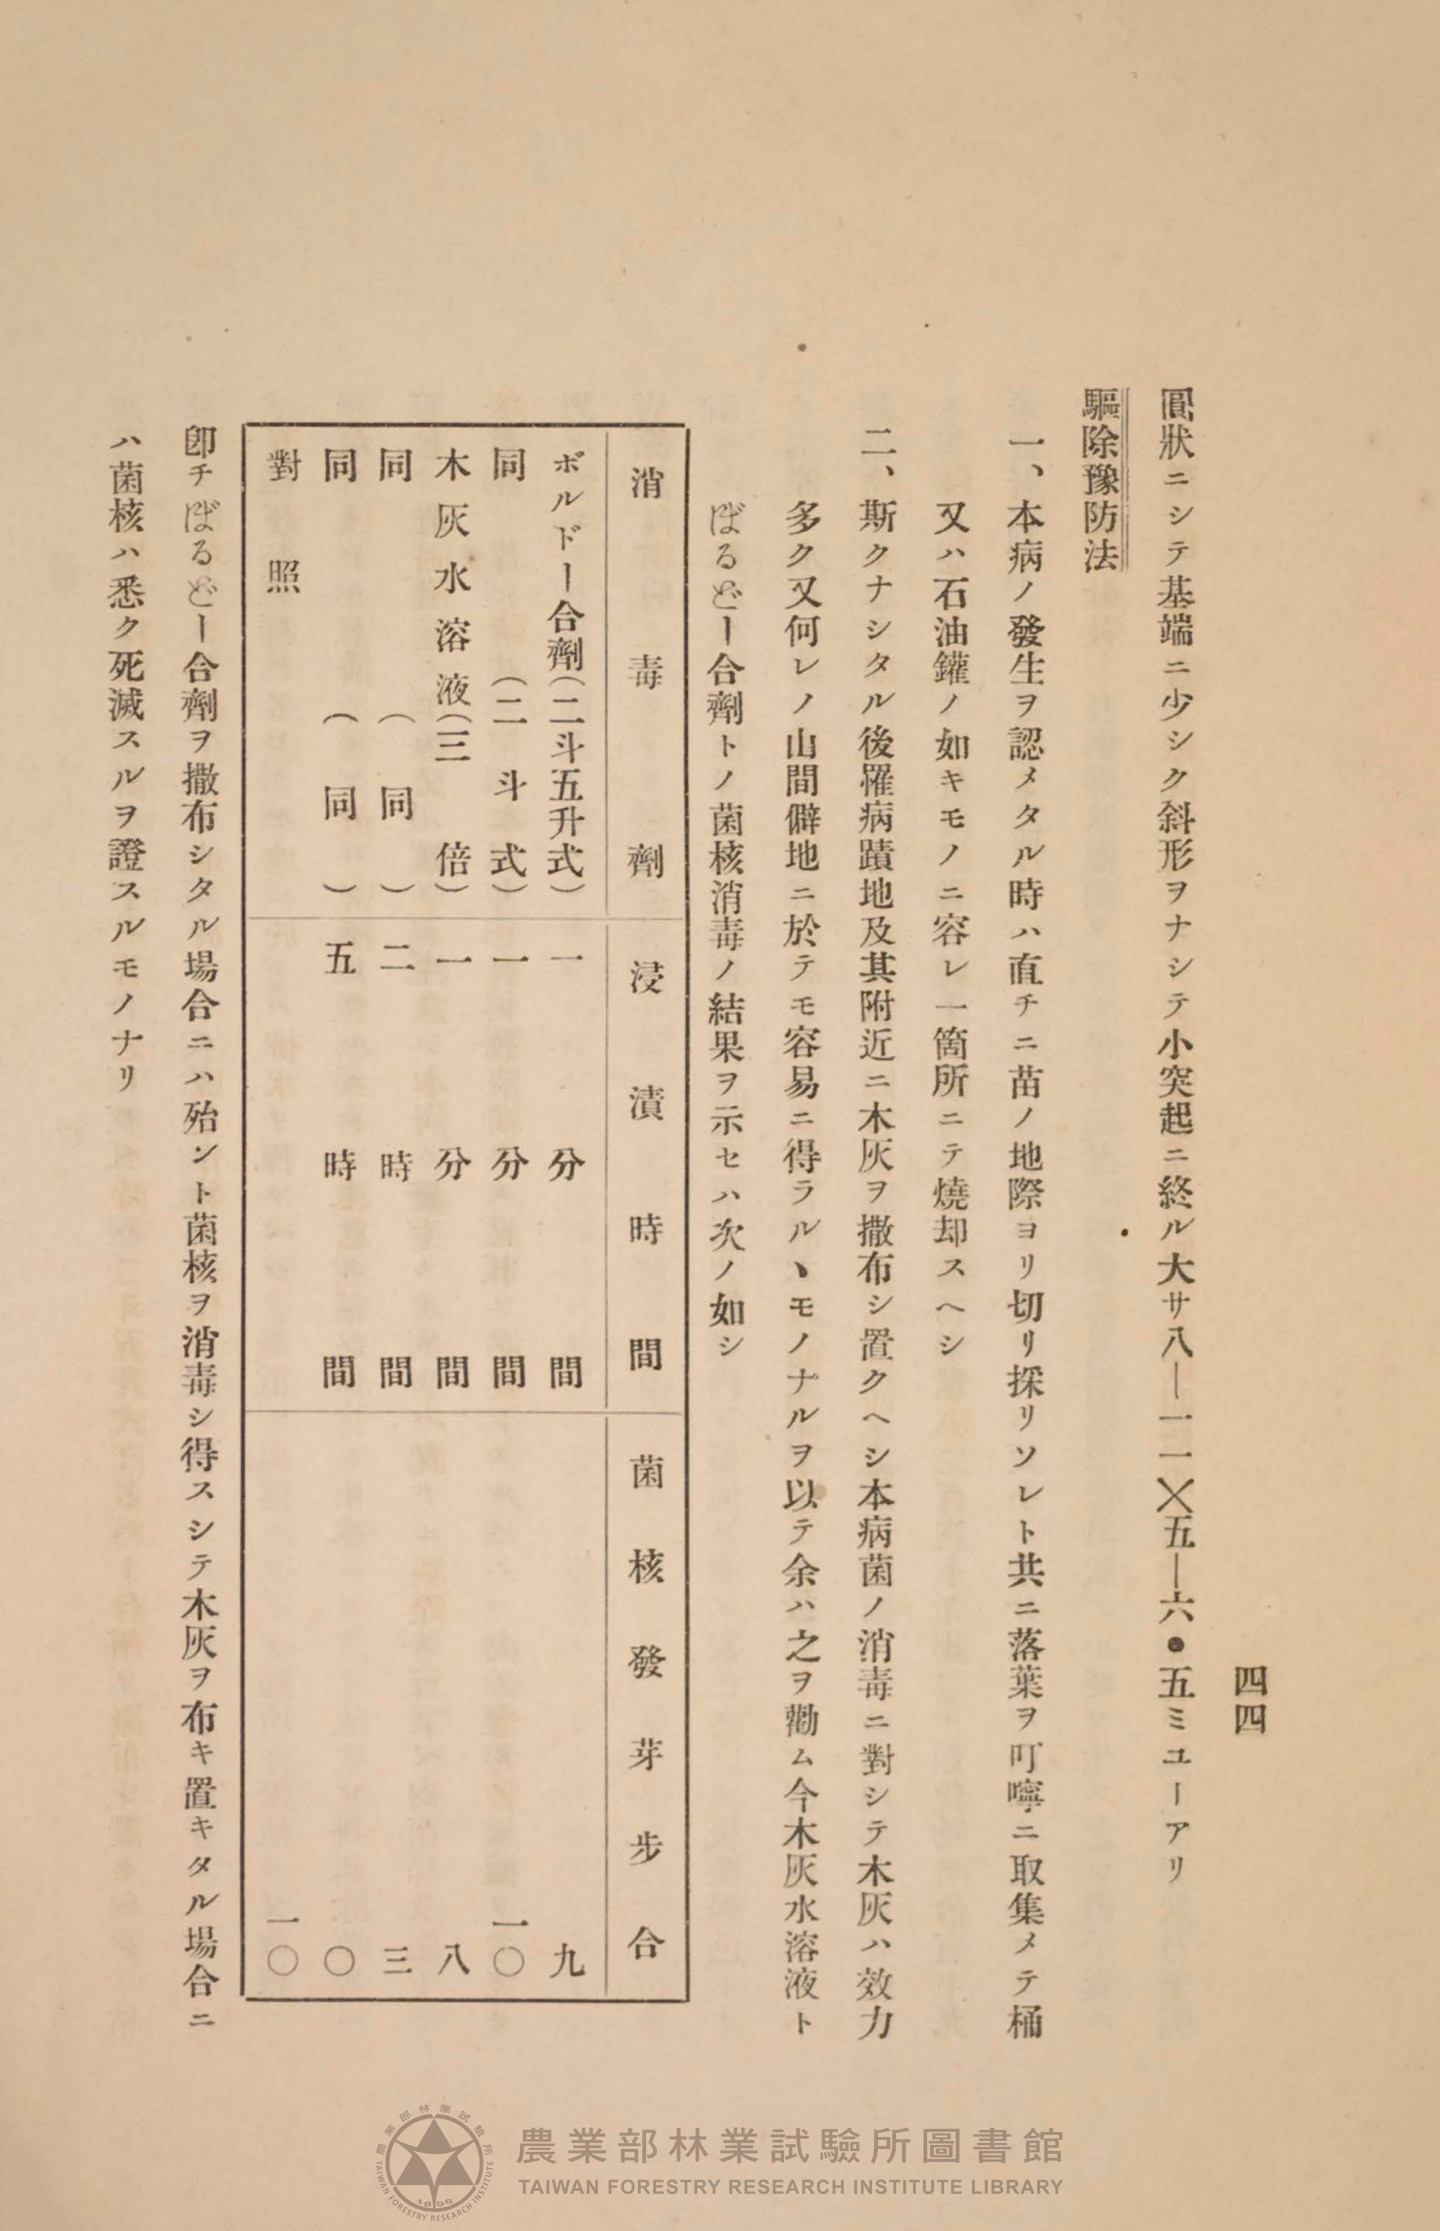 四四
圓狀ニシテ基端ニ少シク斜形ヲナシテ小突起ニ終ル大サ八—一一╳五—六●五ミユーアリ
驅除豫防法
一、本病ノ發生ヲ認メタル時ハ直チニ苗ノ地際ヨリ切リ採リソレト共ニ落葉ヲ叮嚀ニ取集メテ桶
又ハ石油鑵ノ如キモノニ容レ一箇所ニテ燒却スヘシ
二、斯クナシタル後罹病蹟地及其附近ニ木灰ヲ撒布シ置クヘシ本病菌ノ消毒ニ對シテ木灰ハ效力
多ク又何レノ山間僻地ニ於テモ容易ニ得ラルヽモノナルヲ以テ余ハ之ヲ勸ム今木灰水溶液ト
ぼるどー合劑トノ菌核消毒ノ結果ヲ示セハ次ノ如シ
消毒劑 浸漬時間 菌核發芽步合
ボルドー合劑(二斗五升式) 一分間 九
同(二斗式) 一分間 一〇
木灰水溶液(三倍) 一分間 八
同(同) 二時間 三
同(同) 五時間 〇
對照 一〇
卽チぼるどー合劑ヲ撒布シタル場合ニハ殆ント菌核ヲ消毒シ得スシテ木灰ヲ布キ置キタル場合ニ
ハ菌核ハ悉ク死滅スルヲ證スルモノナリ
農業部林業試驗所圖書館
TAIWAN FORESTRY RESEARCH INSTITUTE LIBRARY
農業部林業試驗所
TAIWAN FORESTRY RESEARCH INSTITUTE
1896